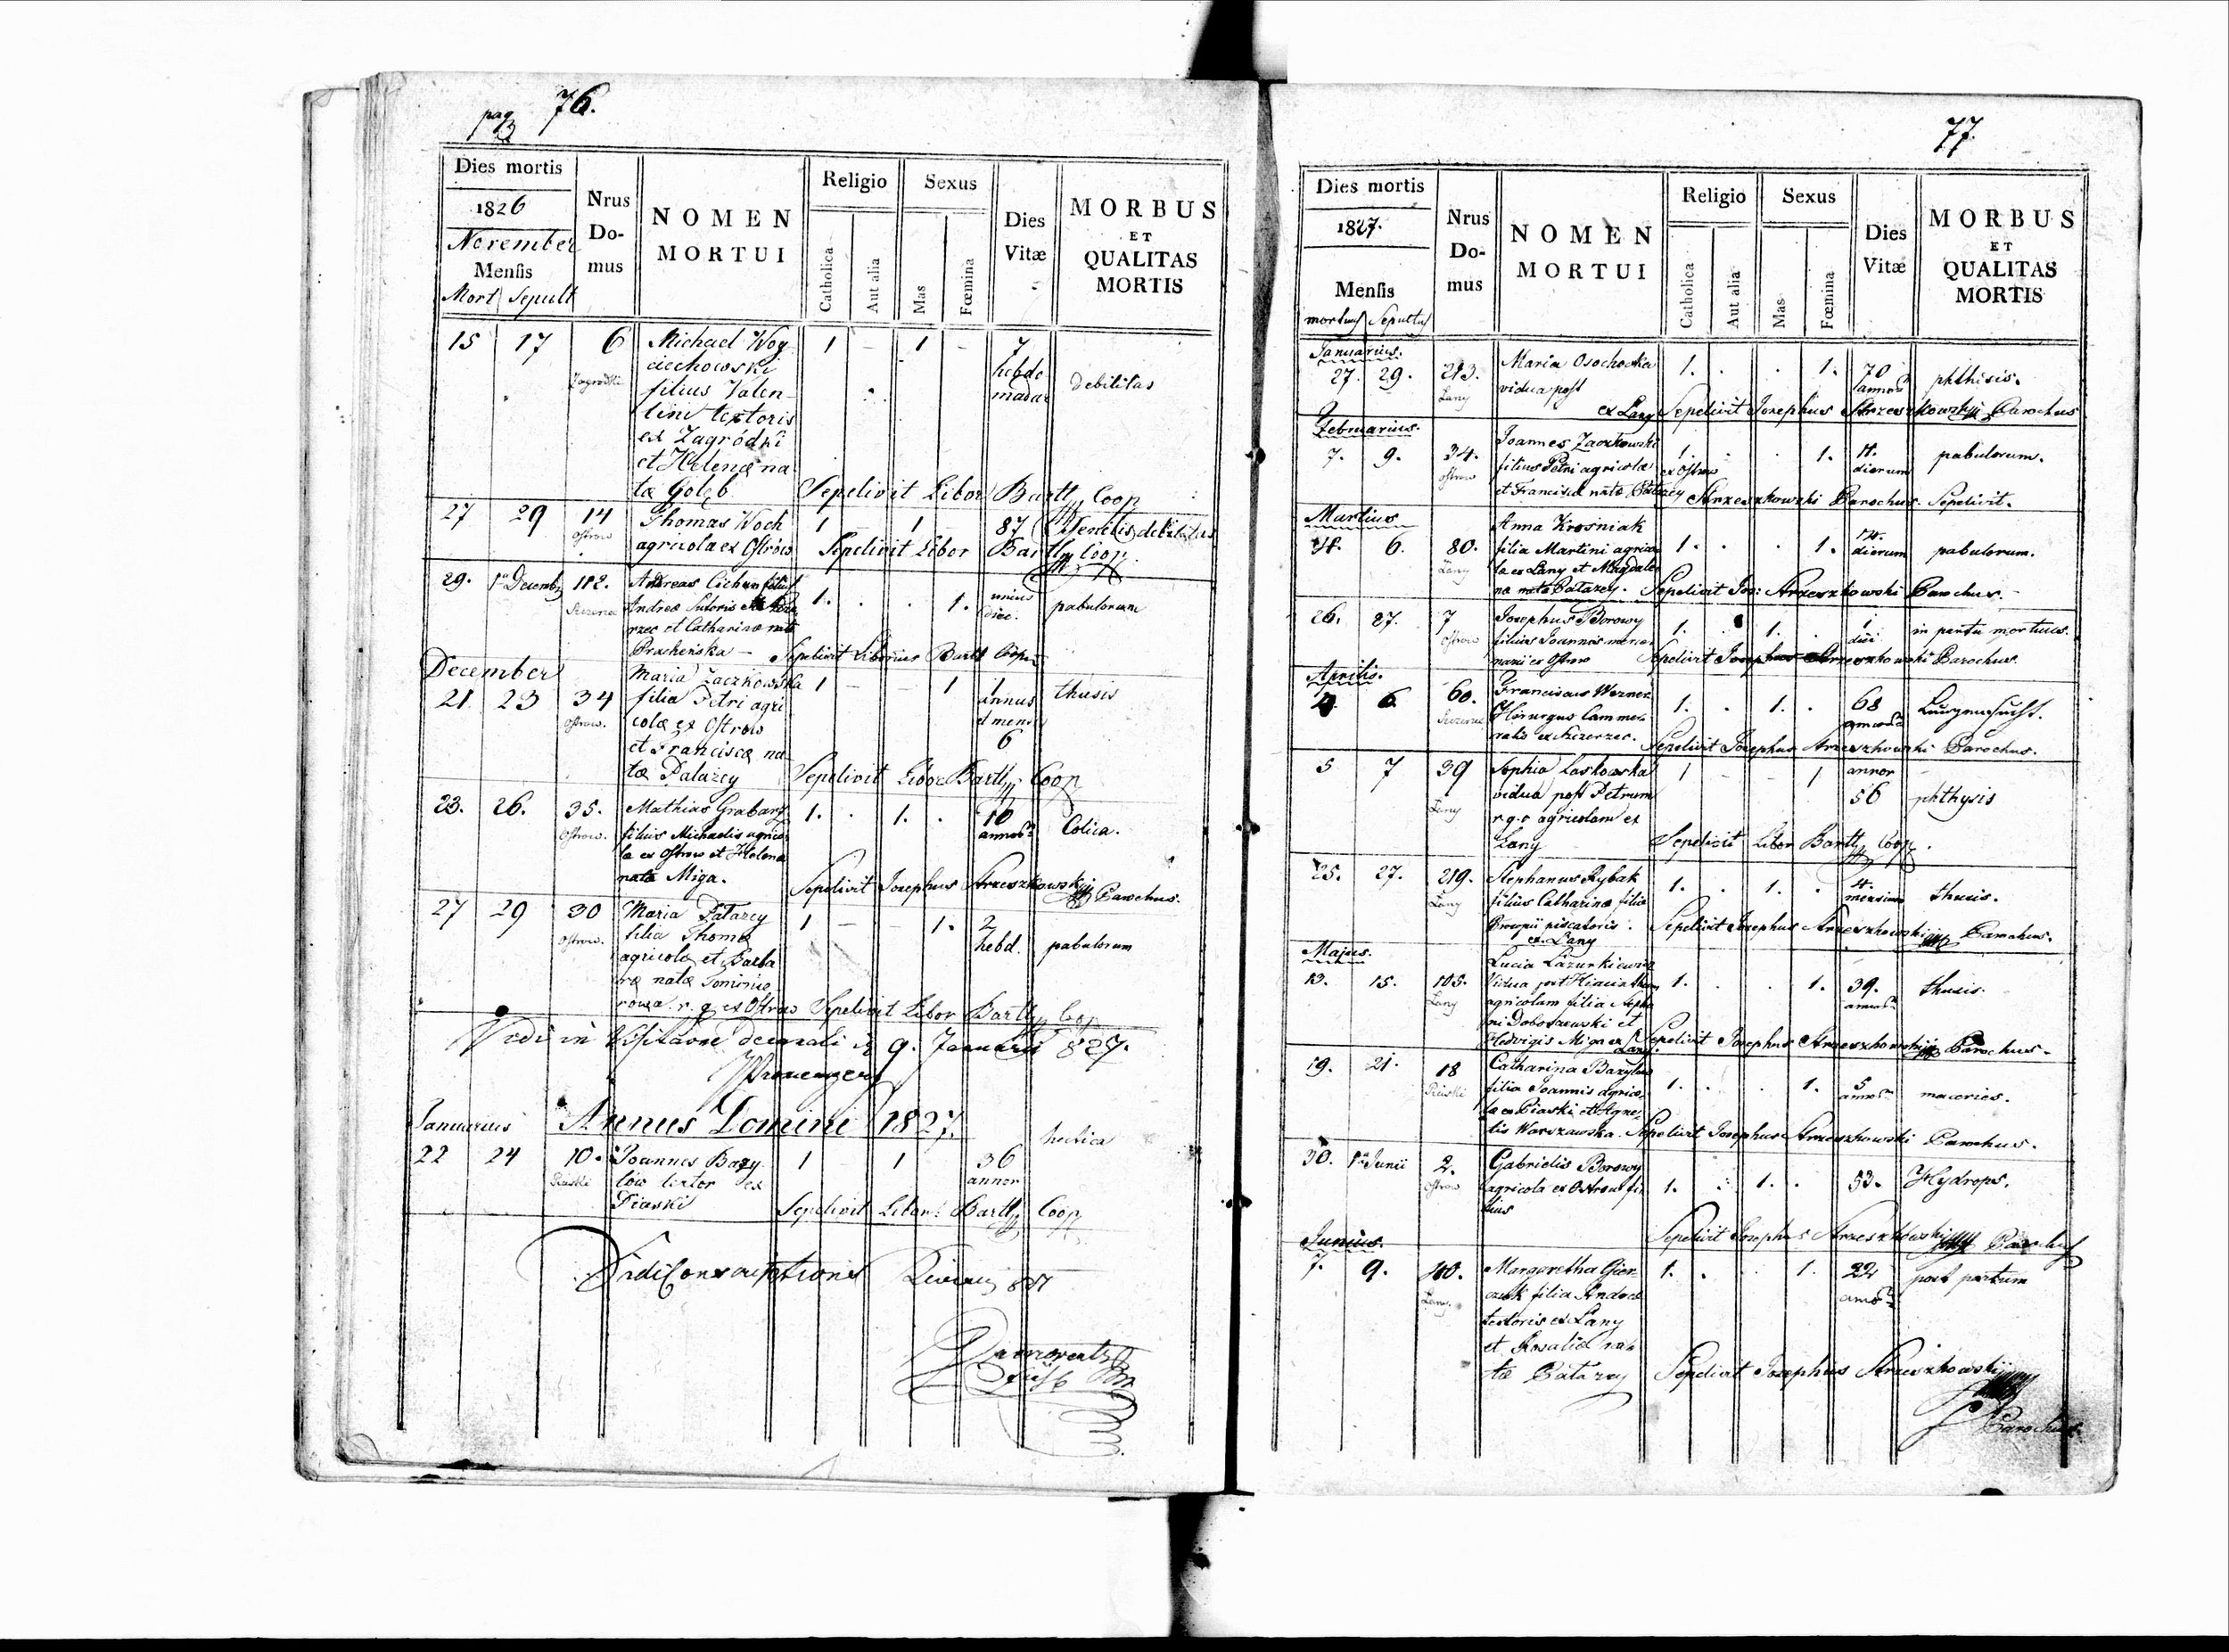 pag 76.
Dies mortis
1826
November
Mensis
Mort Sepult
Nrus Do-mus
NOMEN MORTUI
Religio
Catholica
Aut alia
Sexus
Mas
Fœmina
Dies Vitæ
MORBUS ET QUALITAS MORTIS
15 17 6 Michael Woy 1 – 1 – 7
Zagrodki ciechowski hebdo
filius Valen- madar debilitas
tini textoris
ex Zagródki
et Helenæ na
tæ Gołęb Sepelivit Libor Bartl Coop
27 29 14 Thomas Woch 1 1 87 Senilis debilitas
Ostrow agricola ex Ostrow Sepelivit Libor Bartl Coop
29. 1a Decembr 112. Andreas Cichun filius 1. . . 1. unius
Andreæ Sutoris diei. pabulorum
rzec et Catharinæ natæ
Sepelivit Liborius Bartl Coop
December Maria Zaczkowska 1 – 1 1
21 23 34 filia Petri agri annus thusis
Ostrow. colæ ex Ostrow et mens
et Franciscæ na 6
tæ Patazey Sepelivit Libor Bartl Coop
23. 26. 35. Mathias Grabarz 1. . 1. . 10
Ostrow. filius Michaelis agrico annor Colica.
læ ex Ostrow et Helenæ
natæ Miga. Sepelivit Josephus Strzeszkowski Parochus.
27 29 30 Maria Patazey 1 – 1. 2
Ostrow. filia Thomæ hebd. pabulorum
agricolæ et Barba
ræ natæ
r. g. ex Ostrow Sepelivit Libor Bartl Coop
Vidi in Visitatione decanali 9. Januarii 827.
Januarius Annus Domini 1827. hectica
22 24 10. Joannes Bazy 1 1 36
Piaski low textor ex annor
Piaski Sepelivit Libor Bartl Coop
Vidi 827
77.
Dies mortis
1827.
Mensis
mortuus Sepultus
Nrus Do-mus
NOMEN MORTUI
Religio
Catholica
Aut alia
Sexus
Mas
Fœmina
Dies Vitæ
MORBUS ET QUALITAS MORTIS
Januarius. Maria Osochocka 1. . . 1. 70
27. 29. 213. vidua post annor phthisis.
Lany ex Lany Sepelivit Josephus Strzeszkowski Parochus
Februarius. Joannes Zaczkowski
7. 9. 34. filius Petri agricolæ ex Ostrow 1. . . 1. diorum pabulorum.
Ostrow et Franciscæ natæ Patazey Strzeszkowski Parochus. Sepelivit.
Martius Anna Krosniak 14.
6. 80. filia Martini agrico 1. . . 1. dierum pabulorum.
Lany læ ex Lany et Magdale
næ natæ Patazey. Sepelivit Jos: Strzeszkowski Parochus.
26. 27. 7 Josephus Borowy 1. . 1. . 1
Ostrow filius Joannis merce diei in partu mortuus.
narii ex Ostrow Sepelivit Josephus Strzeszkowski Parochus.
Aprilis. Franciscus Werner
6. 60. Chirurgus Camme 1. . 1. . 68 Lungensucht.
ralis ex Kizerzec. Sepelivit Josephus Strzeszkowski Parochus.
5 7 39 Sophia Laskowska 1 – – 1 annor
Lany vidua post Petrum 56 phthysis
r.g.r agricolam ex
Lany Sepelivit Libor Bartl Coop.
25. 27. 219. Stephanus Rybak 1. . 1. . 4.
Lany filius Catharinæ filiæ mensium thusis.
Procopii piscatoris. Sepelivit Josephus Strzeszkowski Parochus.
ex Lany
Majus. Lucia Lazurkiewicz
13. 15. 105. Vidua post 1. . . 1. 39. thusis.
Lany agricolam filia Stepha annor
ni et
Hedvigis Miga ex Lany. Sepelivit Josephus Strzeszkowski Parochus.
19. 21. 18 Catharina Bazylow
Piaski filia Joannis agrico 1. . . 1. 5
læ ex Piaski et Agne annor macories.
tis Warszawska. Sepelivit Josephus Strzeszkowski Parochus.
30. 1a Junii 2. Gabrielis Borowy
Ostrow agricola ex Ostrow fi 1. . 1. . 53. Hydrops.
lius
Sepelivit Josephus Strzeszkowski Parochus
Junius.
7. 9. 40. Margaretha Gier 1. . . 1. 22 post partum
Lany. czak filia Andreæ annor
textoris ex Lany
et Rosaliæ na
tæ Patazey Sepelivit Josephus Strzeszkowski
Parochus